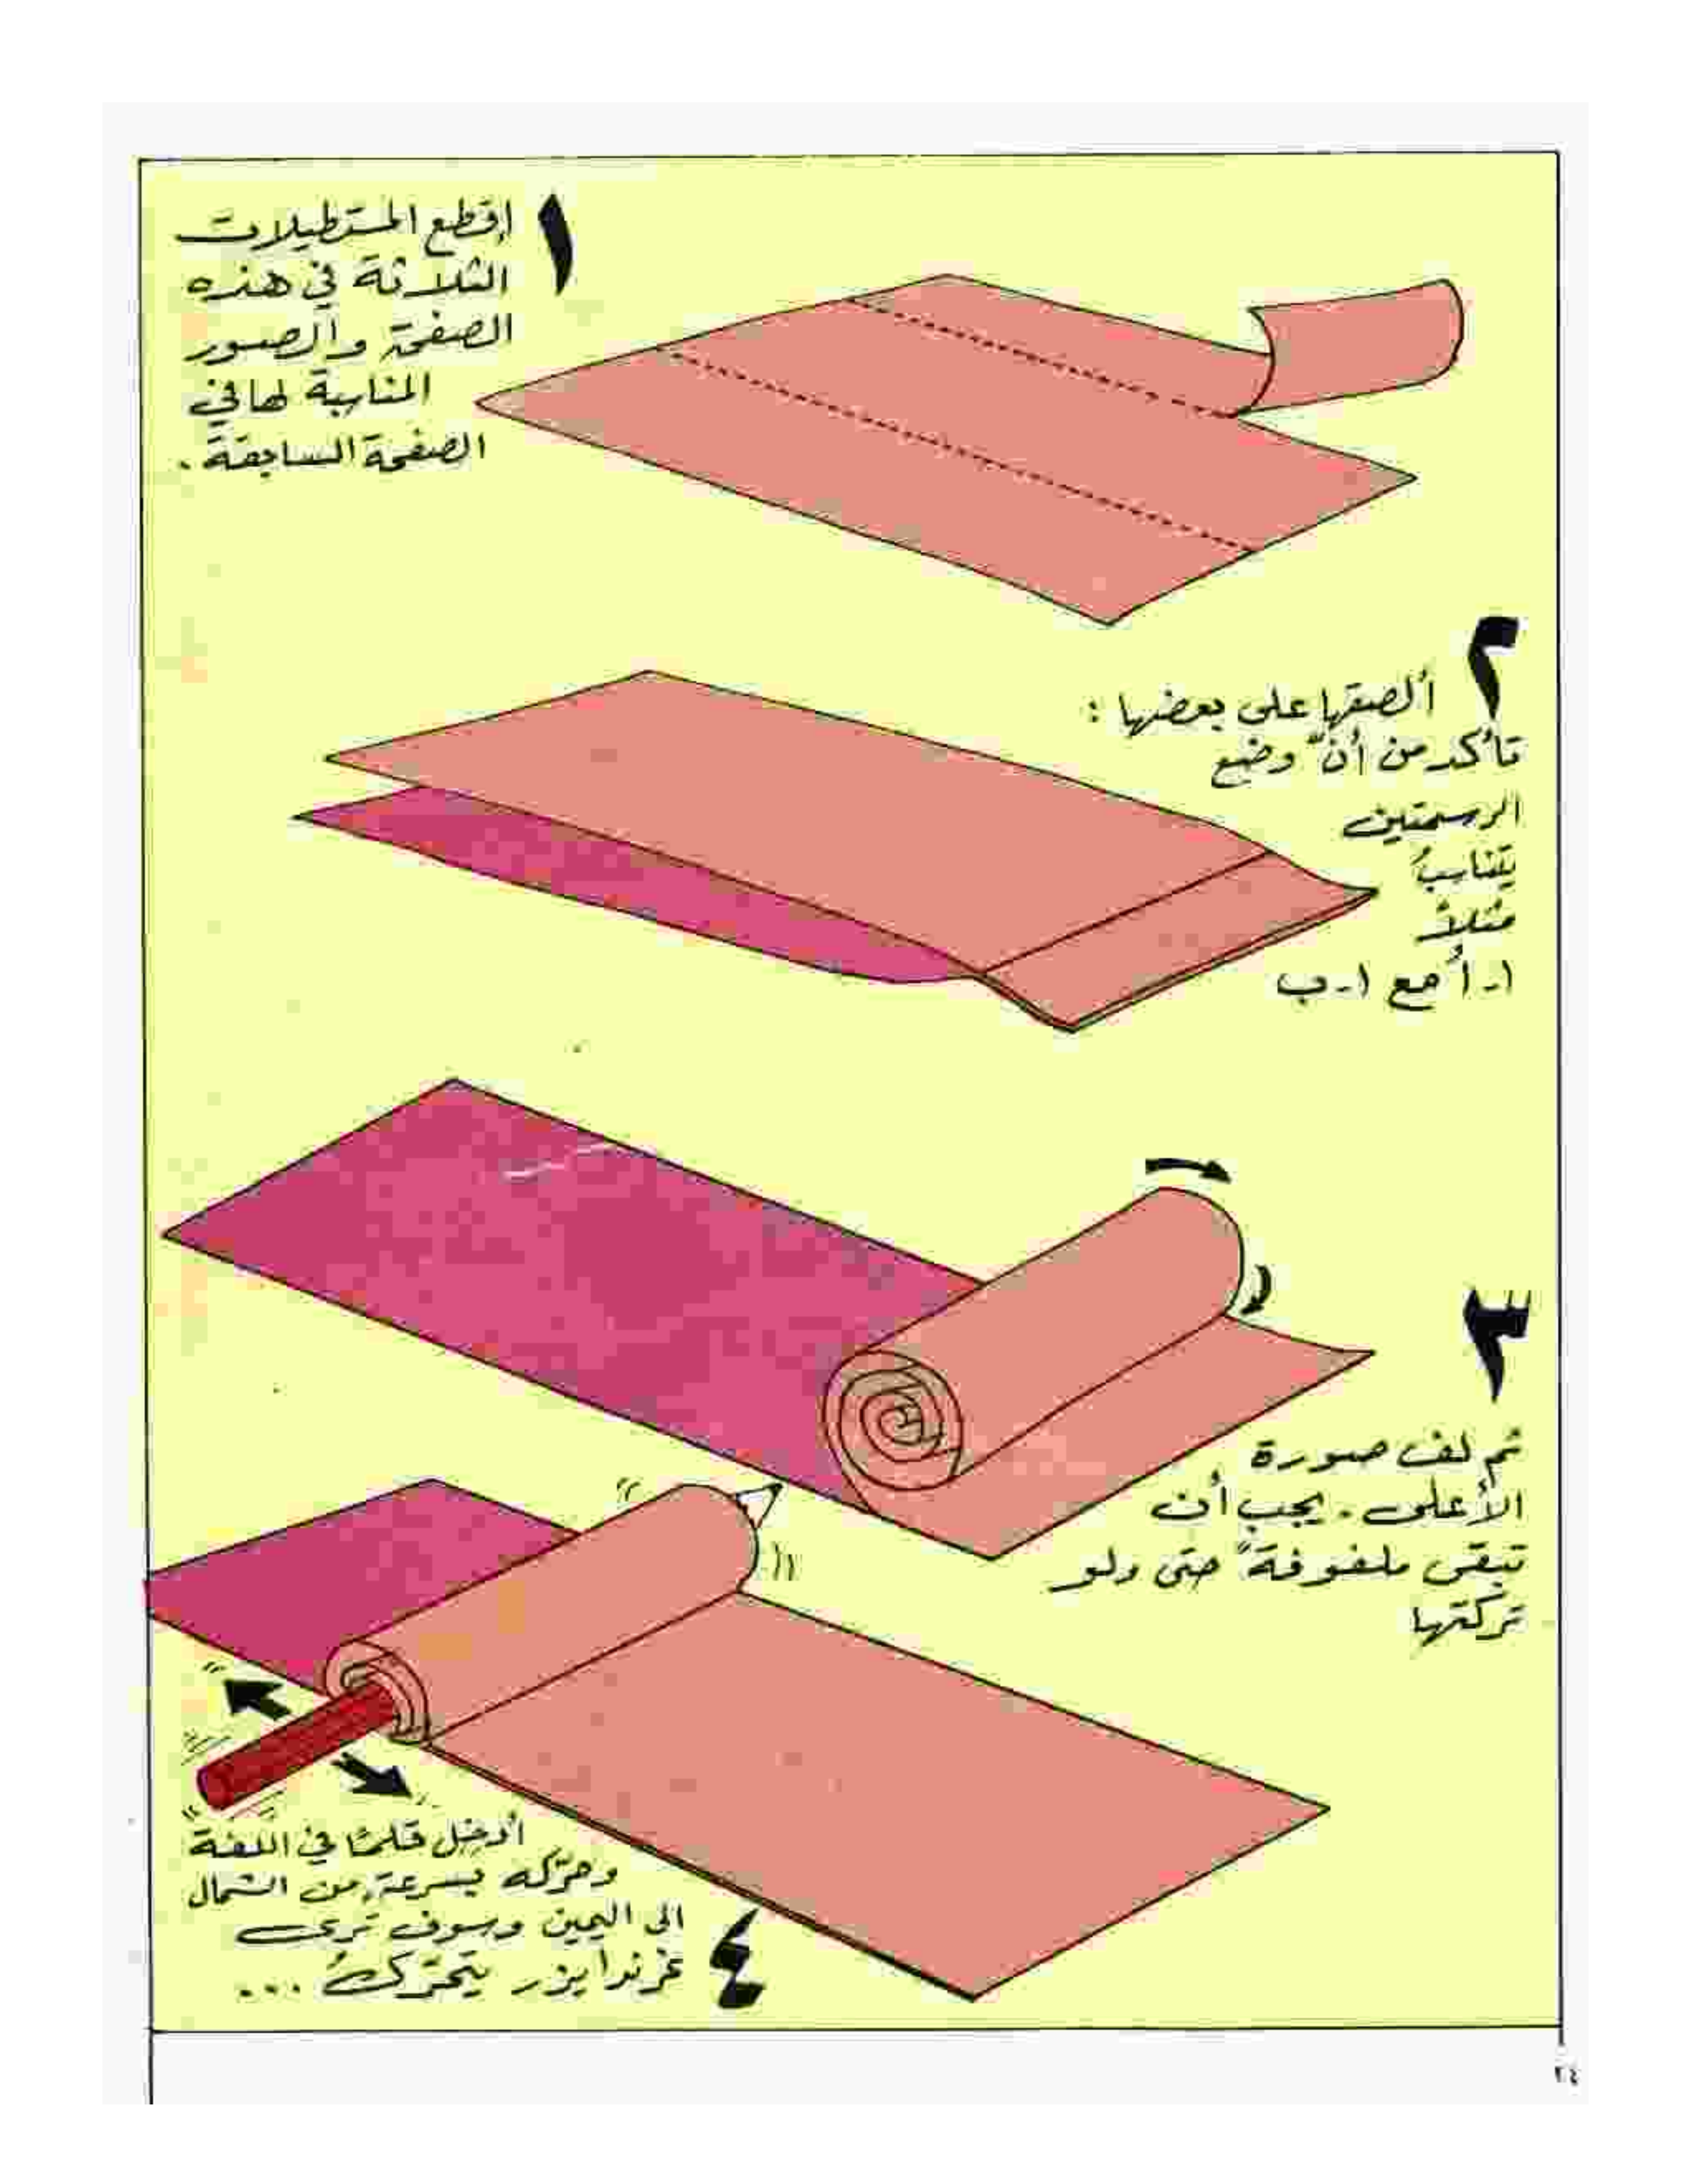 ١
إقطع المستطيلات
الثلاثة في هذه
الصفحة والصور
المناسبة لها في
الصفحة السابقة .
٢
ألصقها على بعضها :
تأكد من أنّ وضع
الرسمتين
يتناسبُ
مثلاً
١ - أ مع ١ - ب
٣
ثم لف صورة
الأعلى . يجب أن
تبقى ملفوفةً حتى ولو
تركتها
٤
أدخل قلمًا في اللفة
وحرّكه بسرعة من الشمال
الى اليمين وسوف ترى
غرندايزر يتحرّكُ ...
٢٤